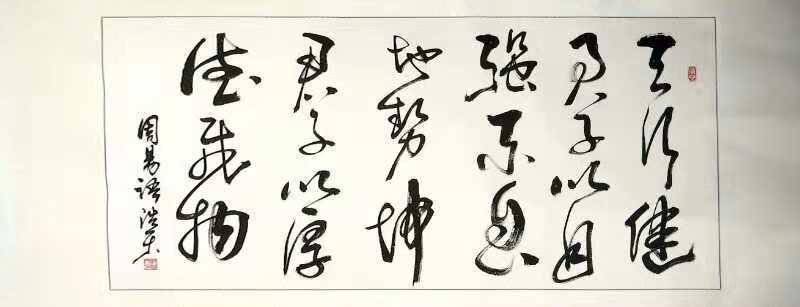 天行健
君子以自
强不息
地勢坤
君子以厚
德載物
周易語